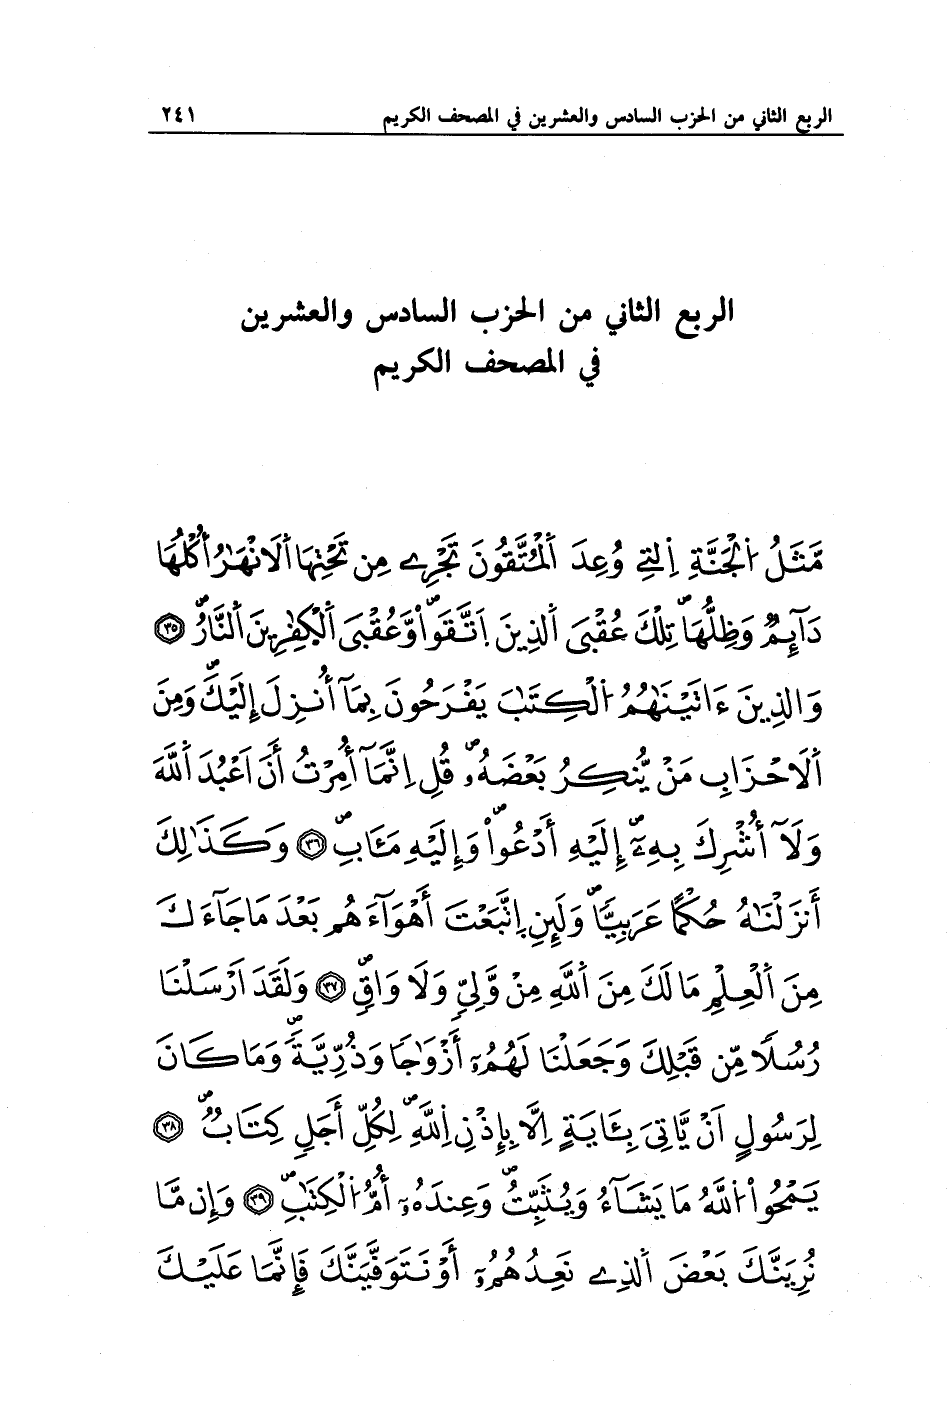 الربع الثاني من الحزب السادس والعشرين في المصحف الكريم ٢٤١
الربع الثاني من الحزب السادس والعشرين
في المصحف الكريم
مَّثَلُ اُ۬لْجَنَّةِ اِ۬لتِے وُعِدَ اَ۬لْمُتَّقُونَ تَجْرِے مِن تَحْتِهَا اَ۬لَانْهَٰرُ أُكُلُهَا
دَآئِمٌ وَظِلُّهَاۖ تِلْكَ عُقْبَى اَ۬لذِينَ اَ۪تَّقَواْۖ وَّعُقْبَى اَ۬لْكٰ۪فِرِينَ اَ۬لنَّارُۖ ٣٥
وَالذِينَ ءَاتَيْنَٰهُمُ اُ۬لْكِتَٰبَ يَفْرَحُونَ بِمَآ أُنزِلَ إِلَيْكَۖ وَمِنَ
اَ۬لَاحْزَابِ مَنْ يُّنكِرُ بَعْضَهُۥۖ قُلِ اِنَّمَآ أُمِرْتُ أَنَ اَعْبُدَ اَ۬للَّهَ
وَلَآ أُشْرِكَ بِهِۦٓۖ إِلَيْهِ أَدْعُواْۖ وَإِلَيْهِ مَـَٔابِۖ ٣٦ وَكَذَٰلِكَ
أَنزَلْنَٰهُ حُكْماً عَرَبِيّاًۖ وَلَئِنِ اِ۪تَّبَعْتَ أَهْوَآءَهُم بَعْدَ مَا جَآءَكَ
مِنَ اَ۬لْعِلْمِ مَا لَكَ مِنَ اَ۬للَّهِ مِنْ وَّلِيّٖ وَلَا وَاقٖۖ ٣٧ وَلَقَدَ اَرْسَلْنَا
رُسُلاً مِّن قَبْلِكَ وَجَعَلْنَا لَهُمُۥٓ أَزْوَٰجاً وَذُرِّيَّةًۖ وَمَا كَانَ
لِرَسُولٍ اَنْ يَّاتِيَ بِـَٔايَةٍ اِلَّا بِإِذْنِ اِ۬للَّهِۖ لِكُلِّ أَجَلٖ كِتَابٌۖ ٣٨
يَمْحُواْ اُ۬للَّهُ مَا يَشَآءُ وَيُثَبِّتُۖ وَعِندَهُۥٓ أُمُّ اُ۬لْكِتَٰبِۖ ٣٩ وَإِن مَّا
نُرِيَنَّكَ بَعْضَ اَ۬لذِے نَعِدُهُمُۥٓ أَوْ نَتَوَفَّيَنَّكَ فَإِنَّمَا عَلَيْكَ